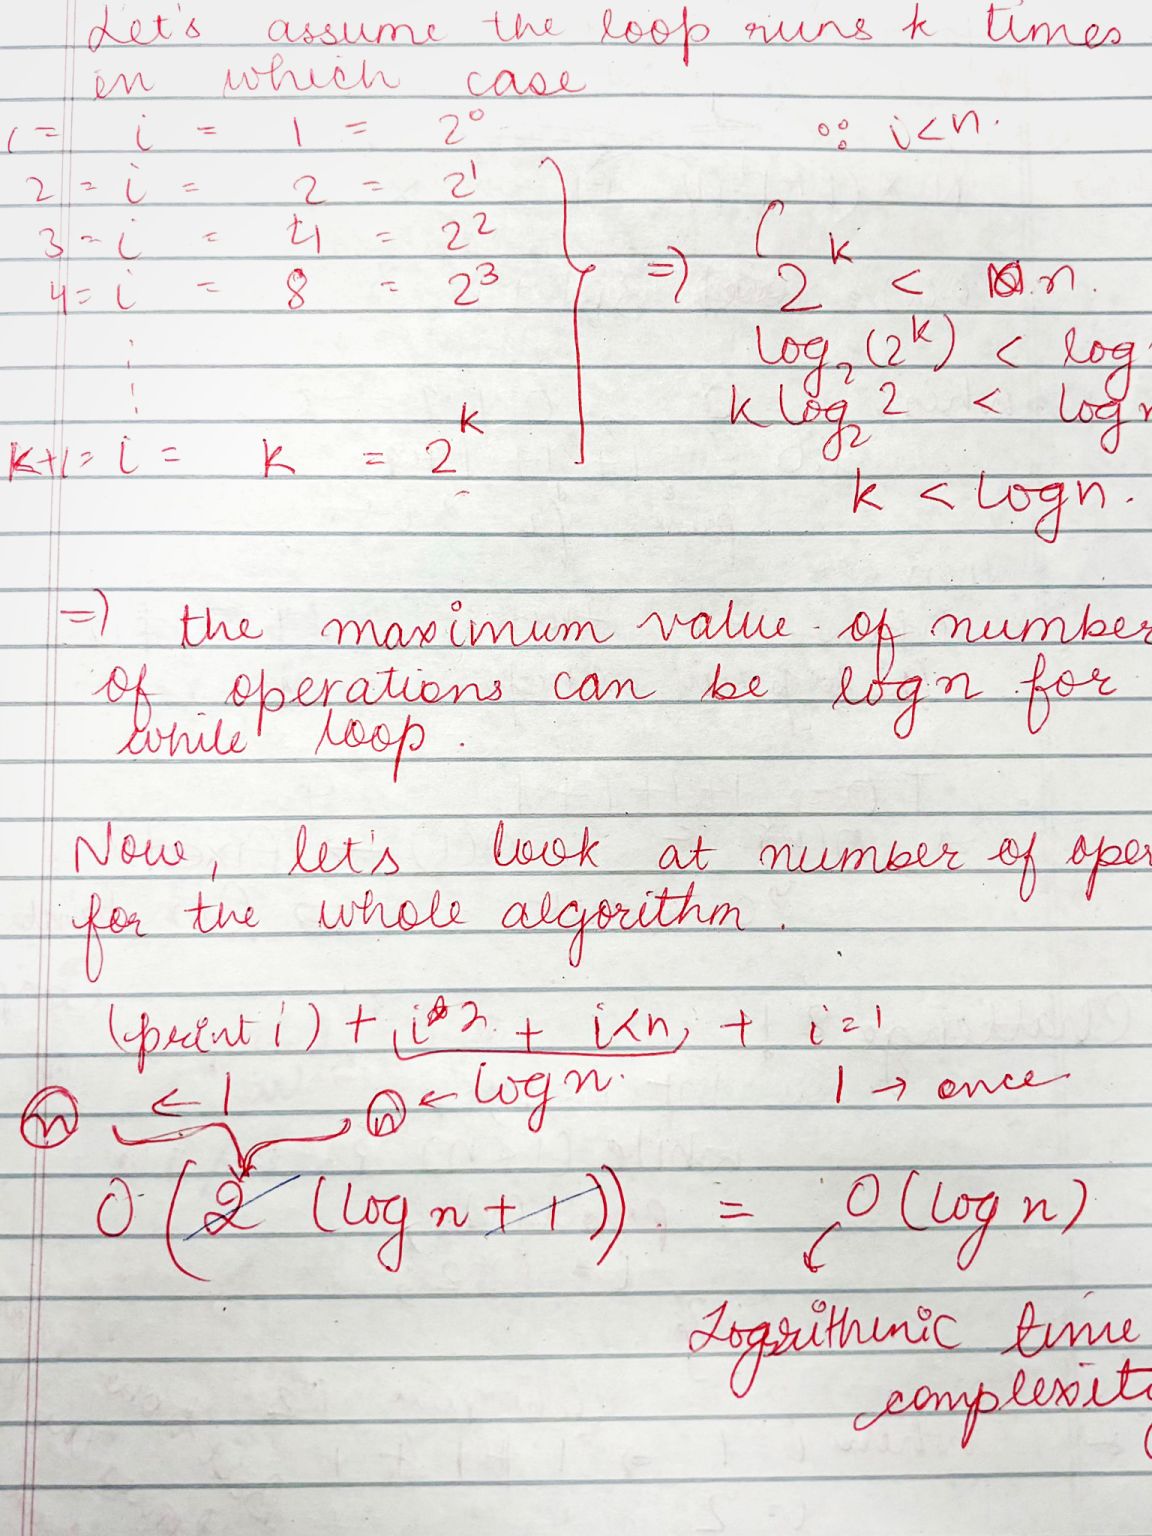 Let's assume the loop runs k times
in which case
1 = i = 1 = 2⁰ ∵ i<n.
2 = i = 2 = 2¹
3 = i = 4 = 2²
4 = i = 8 = 2³ => 2ᵏ < n.
log₂(2ᵏ) < log
k log₂ 2 < log n
k+1 = i = k = 2ᵏ
k < log n.
=> the maximum value of number
of operations can be log n for
while loop.
Now, let's look at number of oper
for the whole algorithm.
(print i) + i*2 + i<n + i=1
n ← 1 n ← log n. 1 → once
O (2 (log n + 1)). = O (log n)
Logrithmic time
complexity